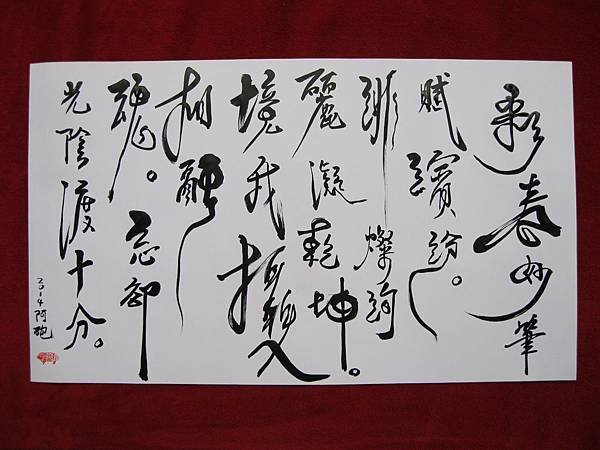 彩春妙筆
賦繽紛。
緋燦絢
麗凝乾坤。
境我入
相融
魂。忘卻
光陰渡十分。
2014 阿